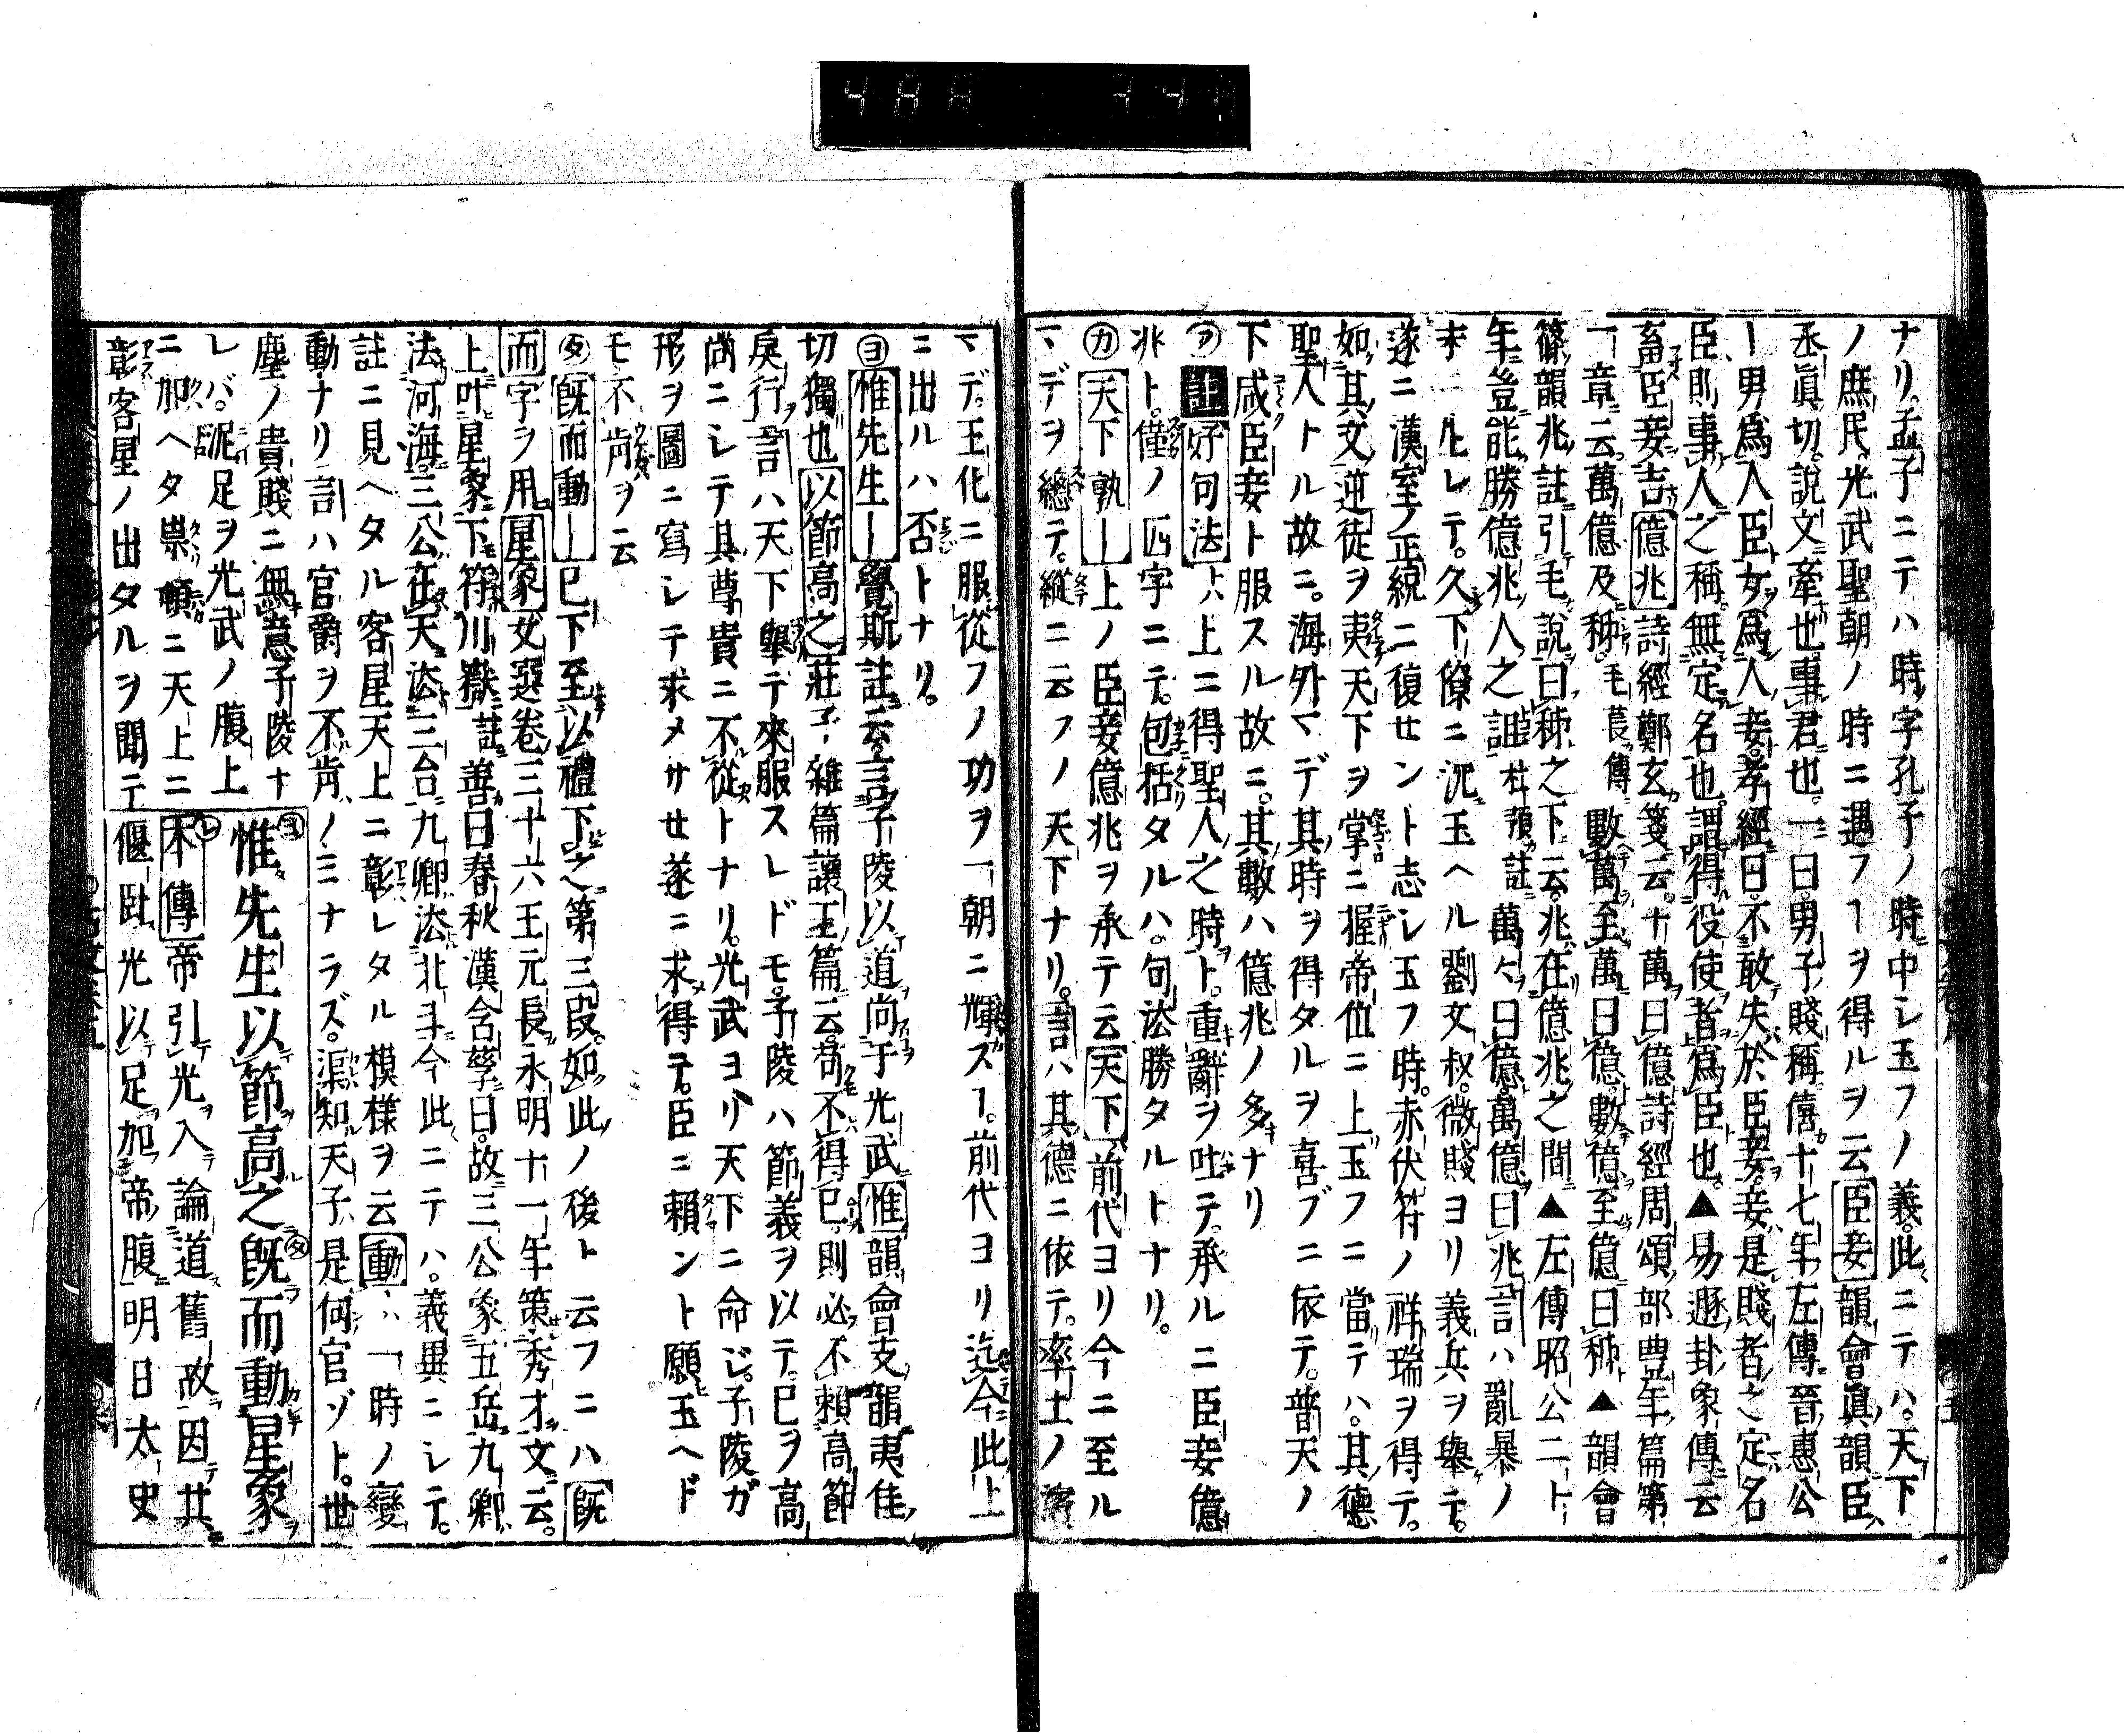 ナリ。孟子ニテハ時ノ字孔子ノ時ニ中シ玉フノ義。此ニテハ。天下
ノ庶民。光武聖朝ノ時ニ遇フヿヲ得ルヲ云臣妾韻會眞韻臣ハ
丞眞切。說文牽也。事君也。一曰。男子賤稱。僖十七年左傳晉惠公
ー男爲人臣女爲人妾。孝經曰。不敢失於臣妾。妾是賤者之定名
臣則事人之稱。無定名也。謂得役使者爲臣也。▲易遯卦象傳云
畜臣妾吉億兆詩經鄭玄箋云。十萬曰億詩經周頌部豊年篇第
一章云。萬億及秭。毛萇傳數萬至萬曰億。數億至億曰秭▲韻會
篠韻兆註引毛說曰秭之下云。兆在億兆之間▲左傳昭公二十
年豈能勝億兆人之詛杜預註萬々曰億。萬億曰兆言ハ亂暴ノ
末ニ生レテ。久下僚ニ沉玉ヘル劉文叔。微賤ヨリ義兵ヲ舉テ。
遂ニ漢室ノ正統ニ復セント志シ玉フ時。赤伏符ノ祥瑞ヲ得テ。
如其文逆徒ヲ夷天下ヲ掌ニ握帝位ニ上玉フニ當テハ。其德
聖人トル故ニ。海外マデ其時ヲ得タルヲ喜ブニ依テ。普天ノ
下咸臣妾ト服スル故ニ。其數ハ億兆ノ多ナリ
㋐好句法ハ上ニ得聖人之時ト。重辭ヲ吐テ。承ルニ臣妾億
兆ト。僅ノ四字ニテ。包括タルハ。句法勝タルトナリ。
㋕天下孰ー上ノ臣妾億兆ヲ承テ云天下前代ヨリ今ニ至ル
マデヲ總テ。縱ニ云フノ天下ナリ。言ハ其德ニ依テ。率土ノ濱
マデ。王化ニ服從フノ功ヲ一朝ニ輝スヿ。前代ヨリ迄今此上
ニ出ルハ否トナリ。
㋵惟先生ー覺斯註云言子陵以道尚于光武惟韻會支韻夷隹
切獨也以節高之莊子雜篇讓王篇云。苟不得已則必不賴高節
戾行言ハ天下舉テ來服スレドモ。子陵ハ節義ヲ以テ。已ヲ高
尚ニシテ其尊貴ニ不從トナリ。光武ヨリ天下ニ命ジ。子陵ガ
形ヲ圖ニ寫シテ求メサセ遂ニ求得テ。臣ニ賴ント願玉ヘド
モ不肯ヲ云
㋟旣而動ー已下至以禮下之第三段。如此ノ後ト云フニハ旣
而字ヲ用星象文選卷三十六王元長永明十一年策秀才文云。
上叶星象下符川嶽註善曰春秋漢含孳曰。故三公象五岳九卿
法河海。三公在天法三台九卿法北斗今此ニテハ。義異ニシテ。
註ニ見ヘタル客星天上ニ彰レタル模樣ヲ云動ハ一時ノ變
動ナリ言ハ官爵ヲ不肯ノミナラズ。渠知天子是何官ゾト。世
塵ノ貴賤ニ無意子陵ナ
レバ。泥足ヲ光武ノ腹上
ニ加ヘタ祟頓ニ天上ニ
彰客星ノ出タルヲ聞テ
惟先生以節高之旣而動星象
本傳帝引光入論道舊故因共
偃臥光以足加帝腹明日太史